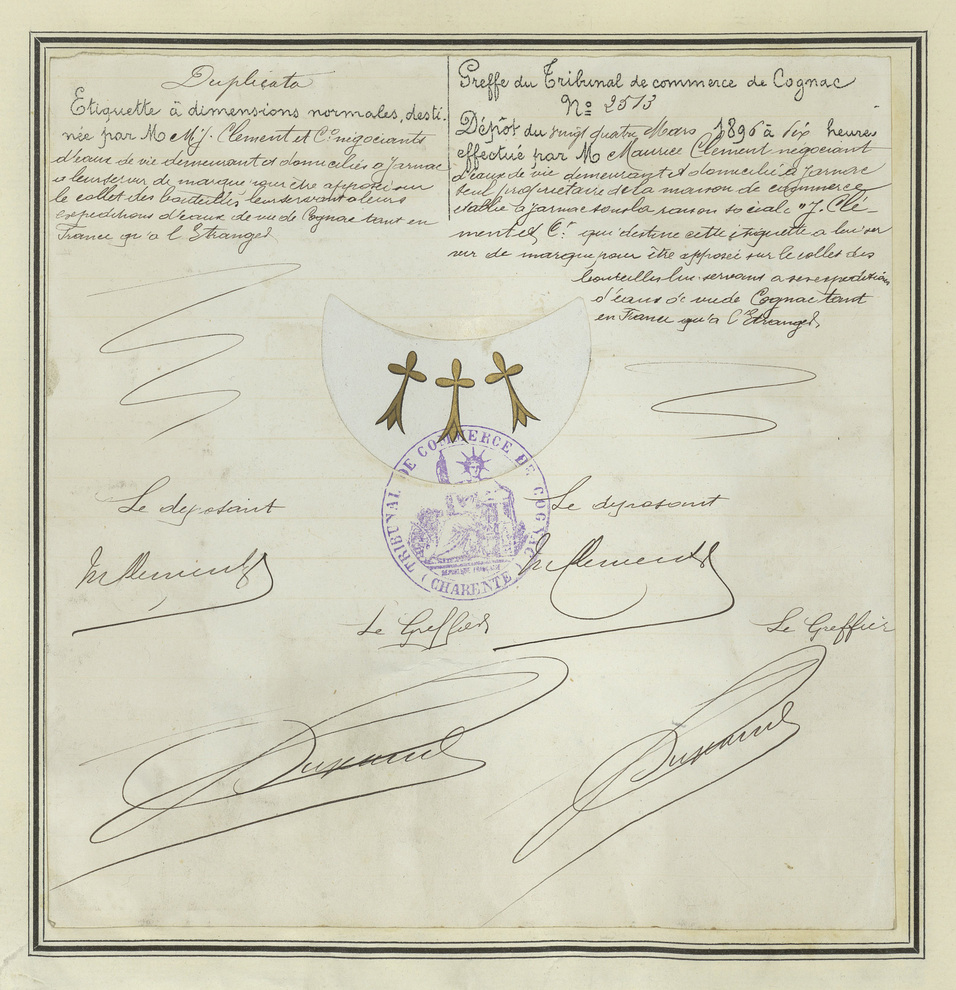 Duplicata
Etiquette à dimensions normales, desti-
née par M M. J. Clement et Cº négociants
d'eaux de vie demeurant et domiciliés à Jarnac
a leur servir de marque pour être apposée sur
le collet des bouteilles leur servant a leurs
expeditions d'eaux de vie de Cognac tant en
France qu'a l'Etranger
Greffe du Tribunal de commerce de Cognac
Nº 2513
Dépôt du vingt quatre Mars 1896 à six heures
effectué par M Maurice Clement negociant
d'eaux de vie demeurant et domicilié à Jarnac
seul propriétaire de la maison de commerce
etablie a Jarnac sous la raison sociale "J. Clé-
ment et Cº. qui destine cette etiquette a lui ser
vir de marque pour être apposée sur le collet des
bouteilles lui servant a ses expeditions
d'eaux de vie de Cognac tant
en France qu'a l'Etranger
TRIBUNAL DE COMMERCE DE COGNAC
(CHARENTE)
Le deposant
Le deposant
M Clement
M Clement
Le Greffier
Le Greffier